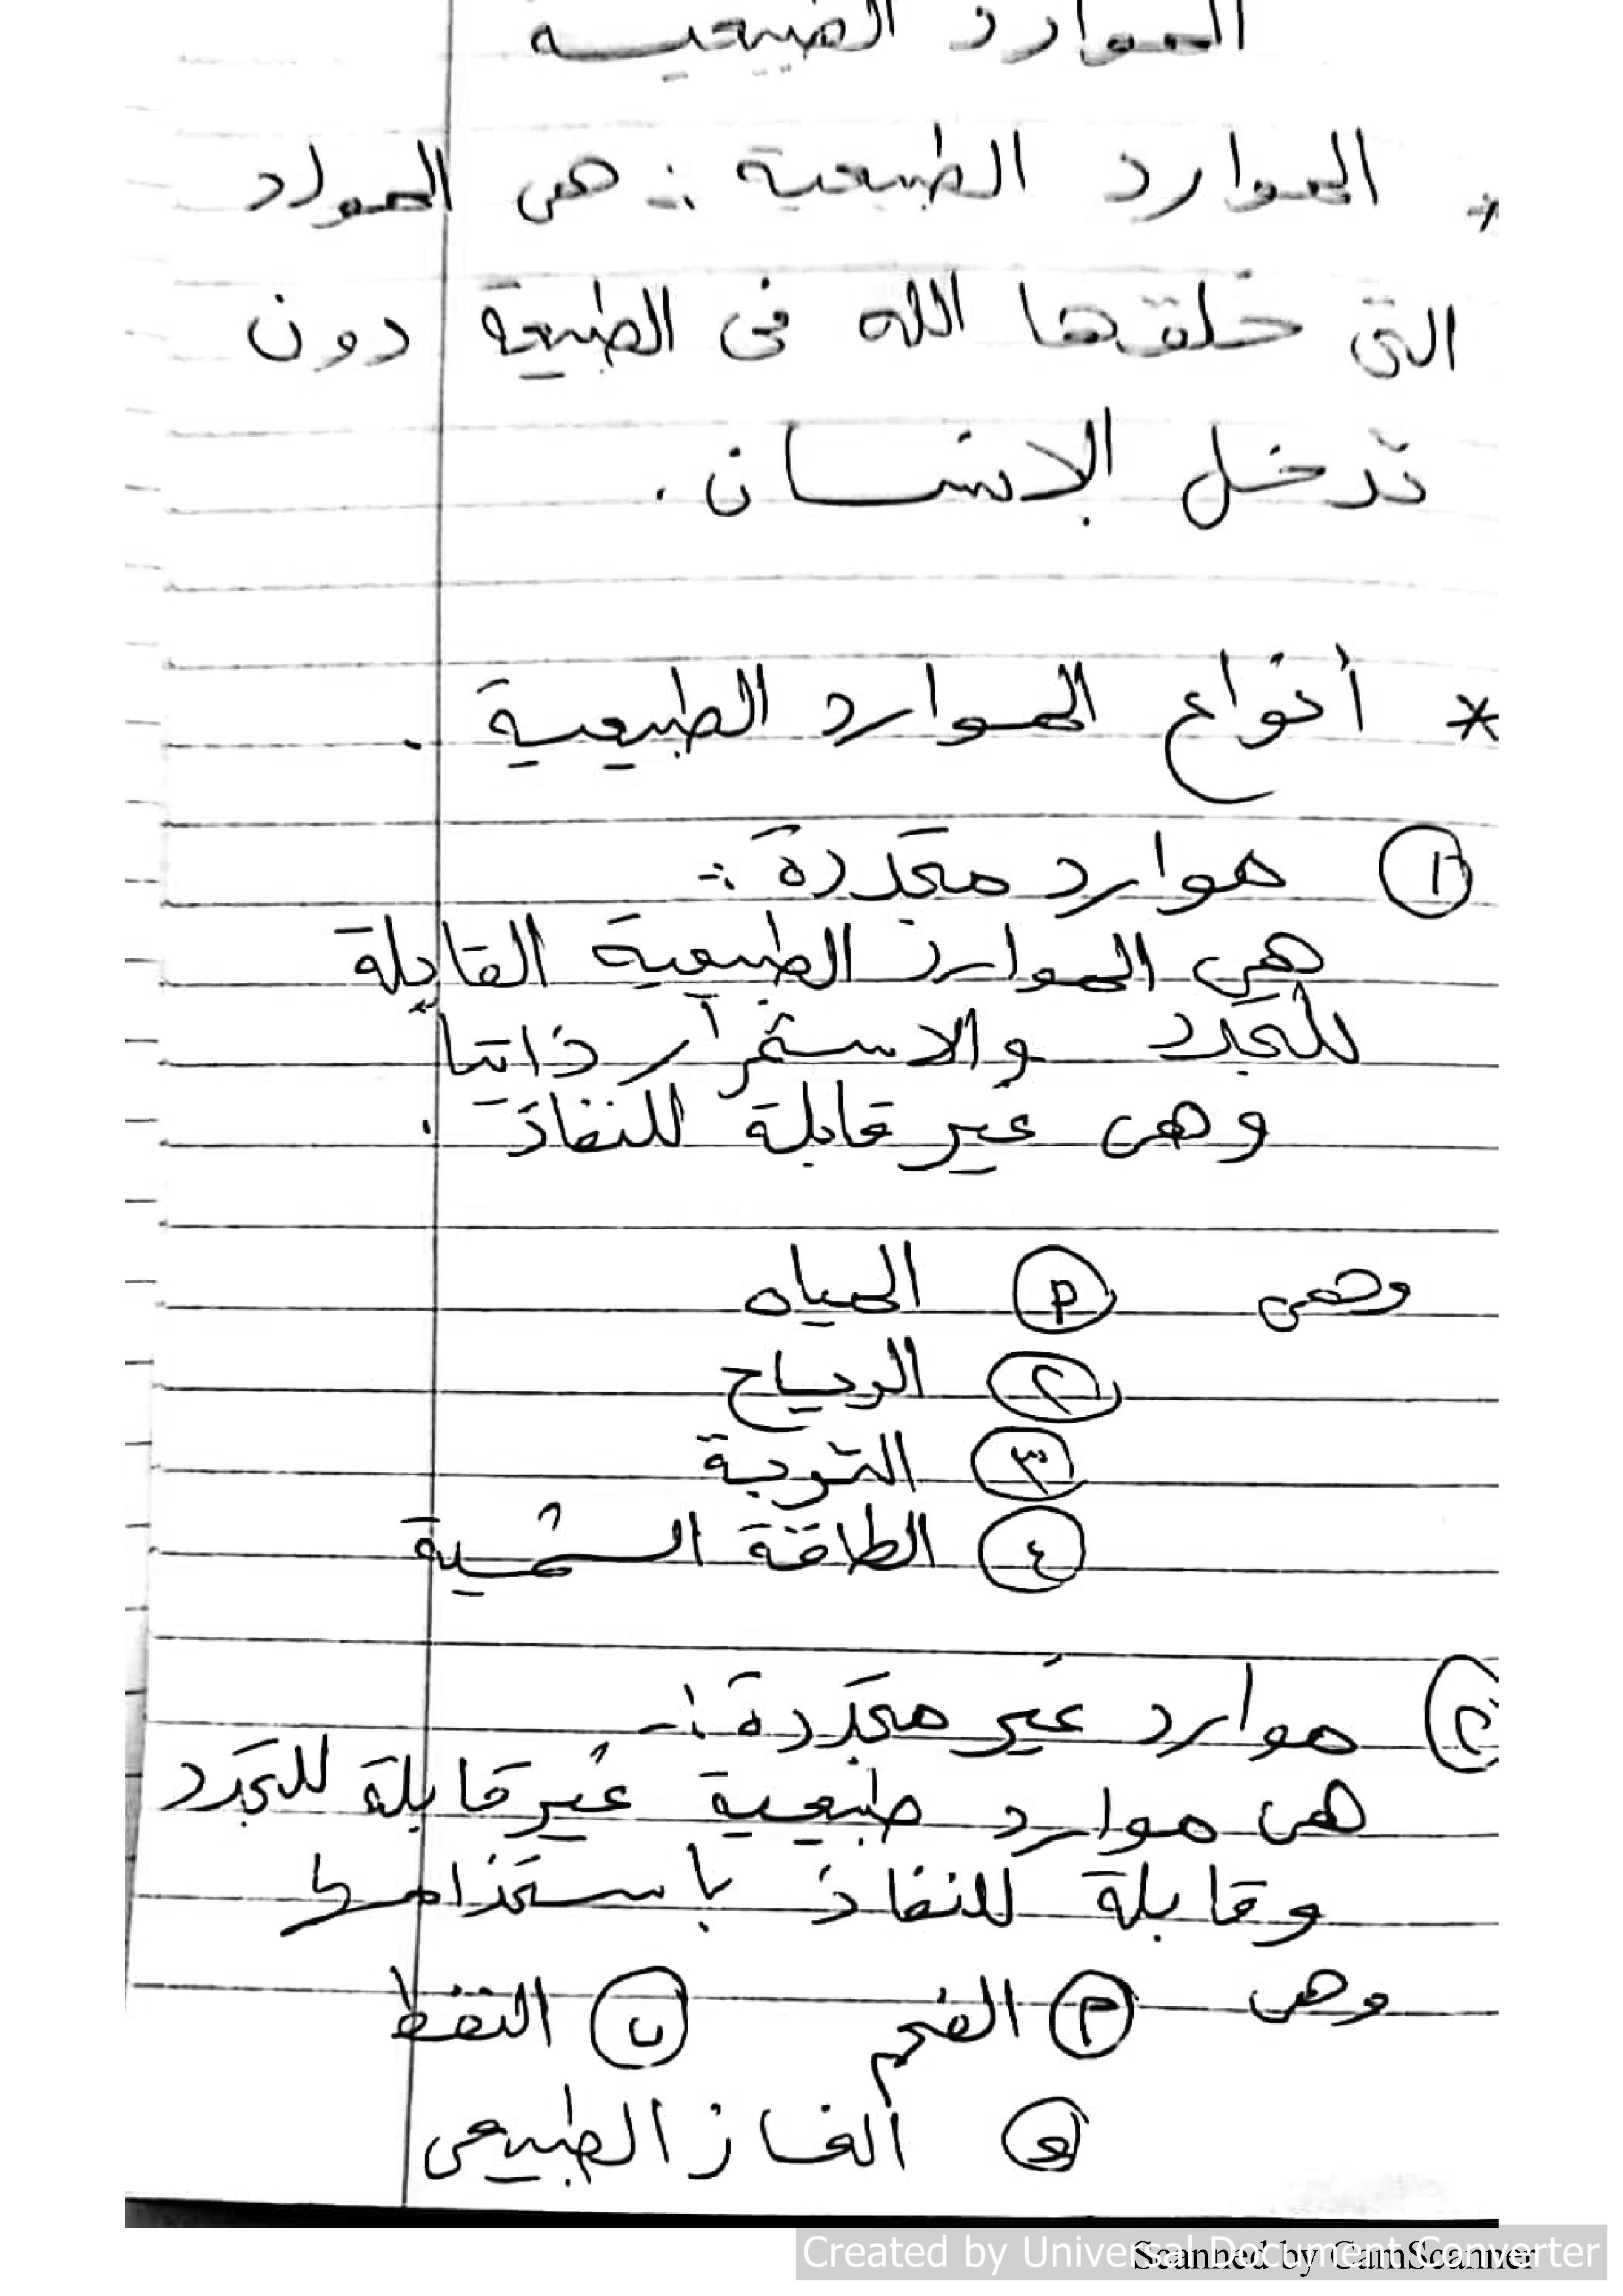 الموارد الطبيعية
* الموارد الطبيعية :- هى الموارد
التى خلقها الله فى الطبيعة دون
تدخل الإنسان .
* أنواع الموارد الطبيعية .
① موارد متجددة :-
هي الموارد الطبيعية القابلة
للتجدد والاستمرار ذاتياً
وهى غير قابلة للنفاذ .
وهى أ المياه
٢ الرياح
٣ التربة
٤ الطاقة الشمسية
٢ موارد غير متجددة :-
هى موارد طبيعية غير قابلة للتجدد
وقابلة للنفاذ باستخدامها
وهى أ الفحم ب النفط
جـ الغاز الطبيعى
Created by Universal Document Converter
Scanned by CamScanner